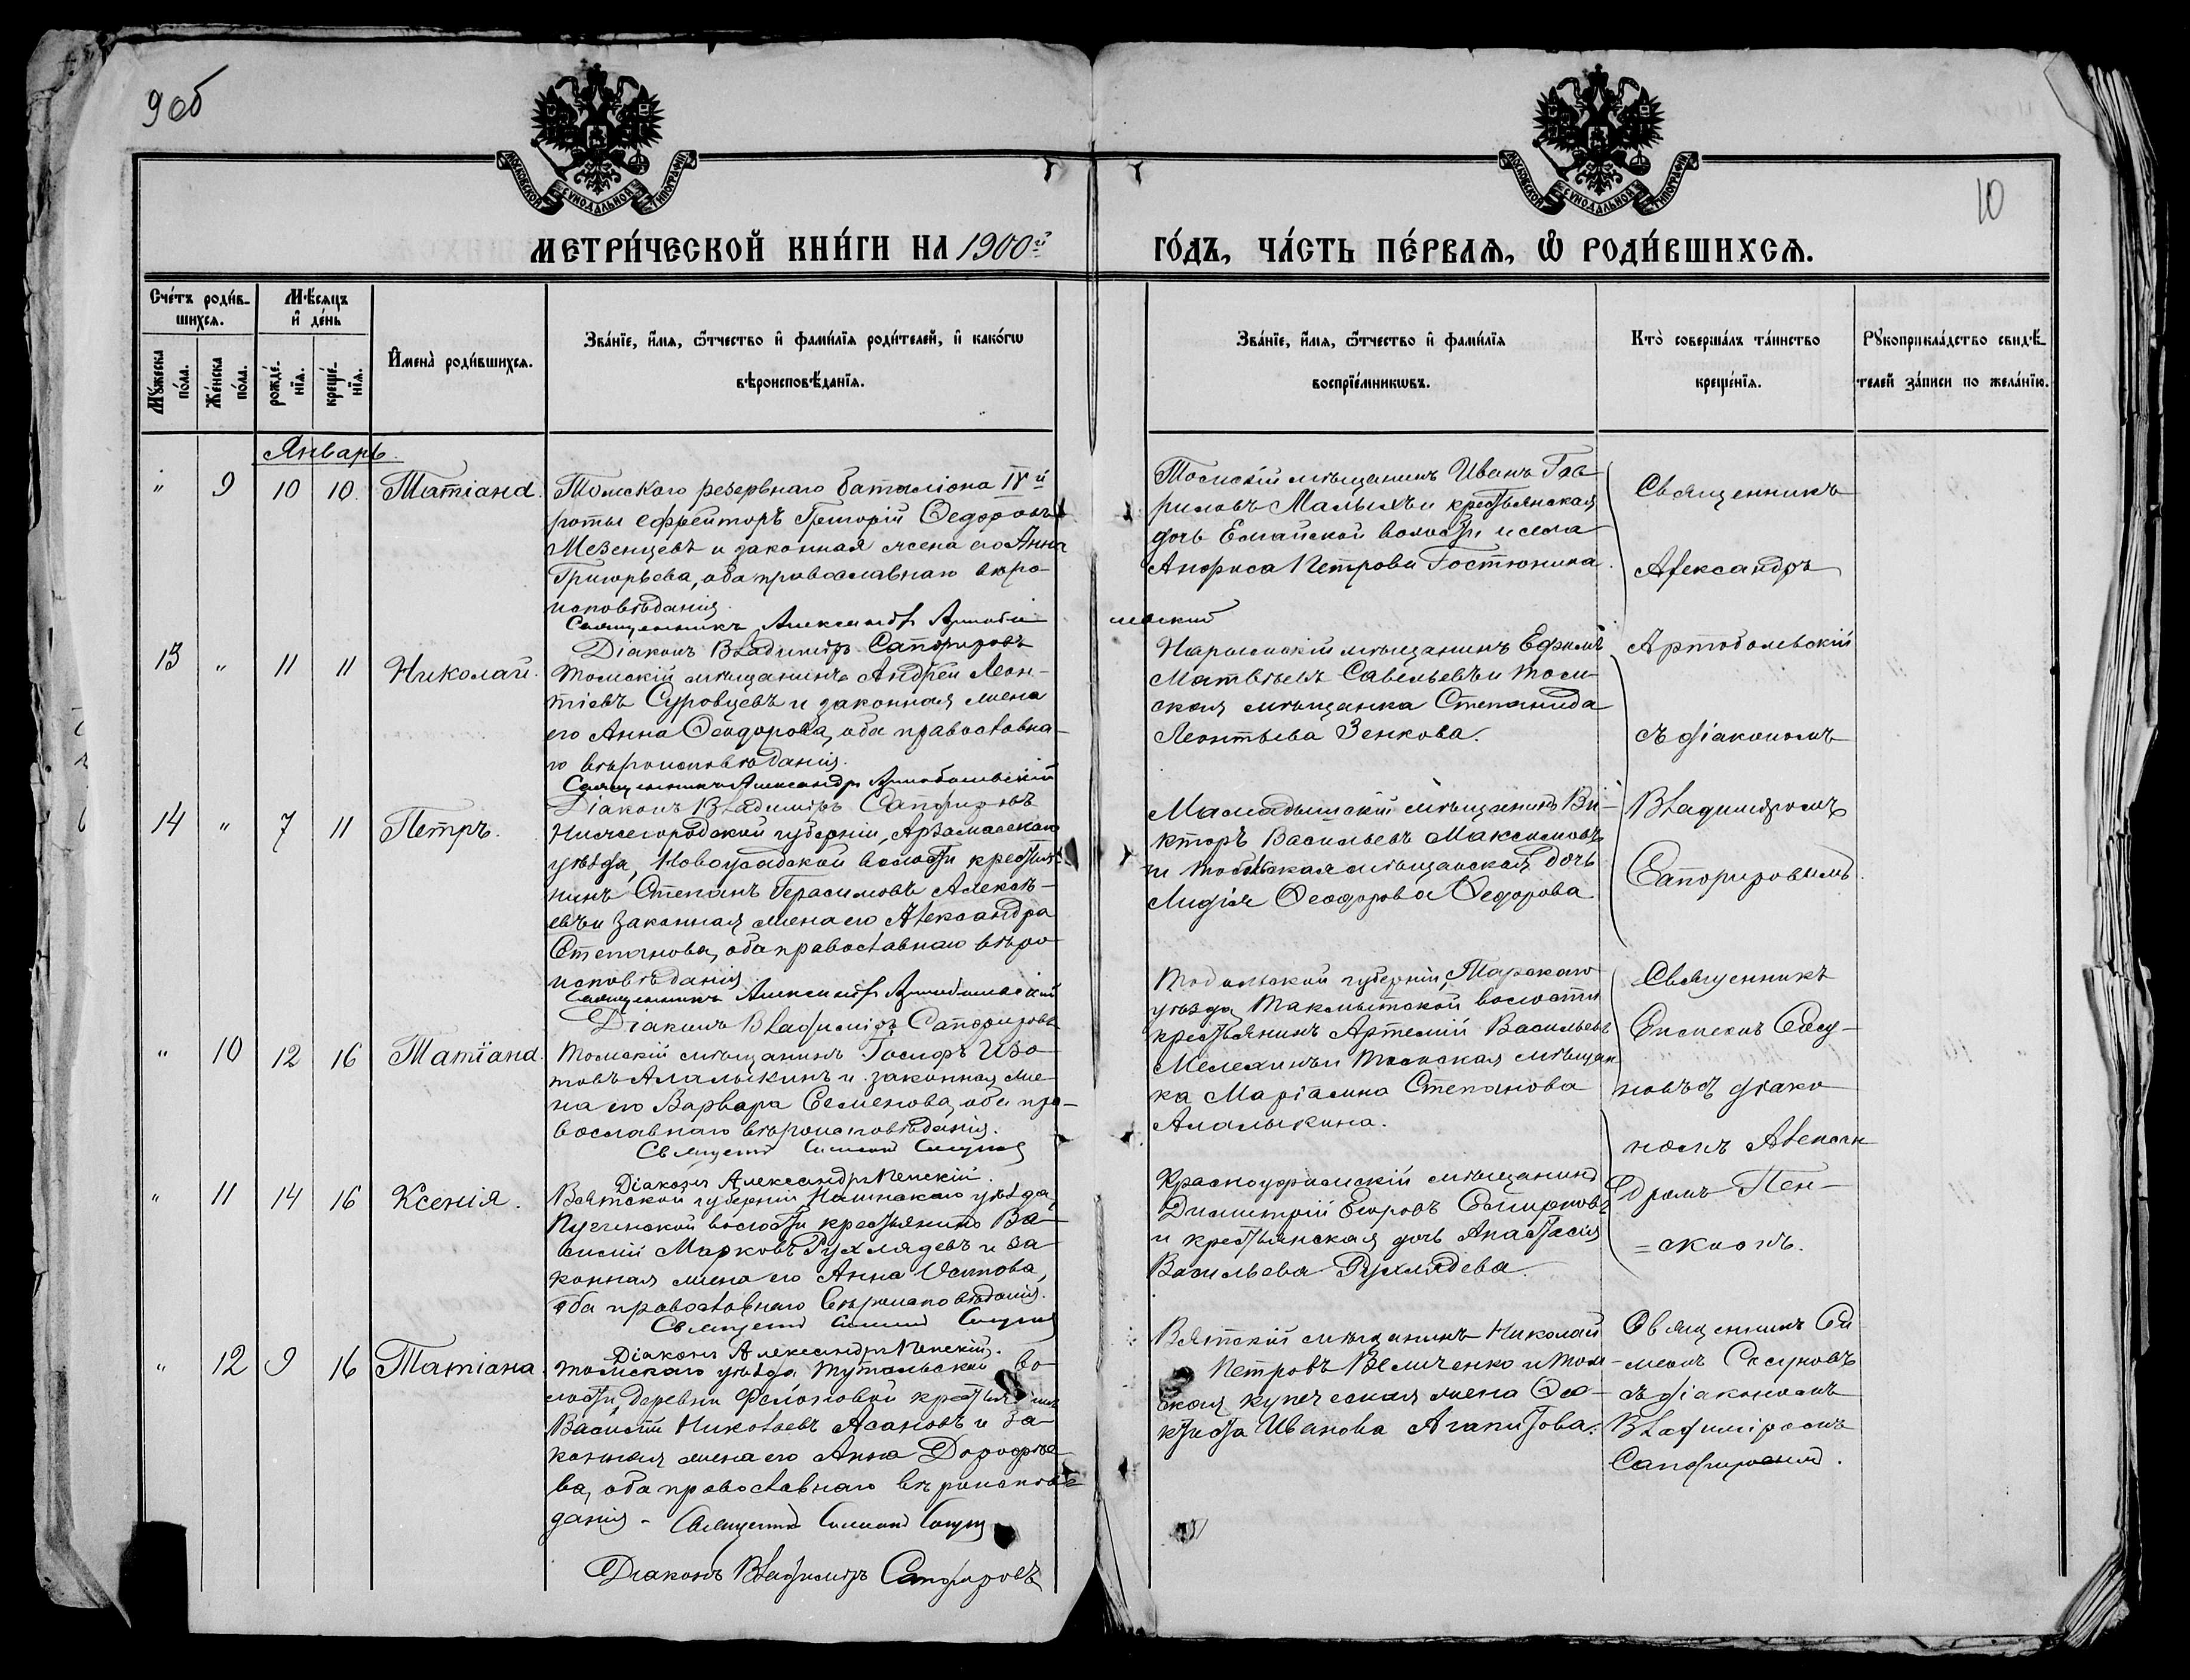 9 об
МОСКОВСКОЙ СѴНОДАЛЬНОЙ ТИПОГРАФІИ
МОСКОВСКОЙ СѴНОДАЛЬНОЙ ТИПОГРАФІИ
10
МЕТРИ́ЧЕСКОЙ КНИ́ГИ НА 1900й
ГО́ДЪ, ЧА́СТЬ ПЕ́РВАЯ, Ѽ РОДИ́ВШИХСЯ.
Сче́тъ роди́в-
шихся.
Мѣ́сяцъ
и де́нь
Мꙋ́жеска по́ла.
Же́нска по́ла.
рожде́-
нїя.
креще́-
нїя.
Имена̀ роди́вшихся.
Зва́нїе, и́мя, ѻ́тчество и фами́лїя роди́телей, и како́гѡ
вѣроисповѣ́данїя.
Зва́нїе, и́мя, ѻ́тчество и фами́лїя
воспрїе́мникѡвъ.
Кто̀ соверша́лъ та́инство
креще́нїя.
Рꙋкоприкла́дство свидѣ́-
телей за́писи по жела́нїю.
Январь.
" 9 10 10. Татіана.
Томскаго резервнаго баталіона IV й
роты ефрейторъ Григорій Ѳедоровъ
Мезенцевъ и законная жена его Анна
Григорьева, оба православнаго вѣро-
исповѣданія.
Священникъ Александръ Артобо
левскій
Діаконъ Владиміръ Сапфировъ
Томскій мѣщанинъ Иванъ Гав-
риловъ Малыхъ и крестьянская
дочь Елгайской волости и села
Анфиса Петрова Гостюнина.
Священникъ
Александръ
Артоболевскій
съ діакономъ
Владиміромъ
Сапфировымъ.
13 " 11 11 Николай.
Томскій мѣщанинъ Андрей Леон-
тіевъ Суровцевъ и законная жена
его Анна Ѳеодорова, оба православна-
го вѣроисповѣданія.
Священникъ Александръ Артоболевскій
Діаконъ Владиміръ Сапфировъ
Нарымскій мѣщанинъ Ефимъ
Матвѣевъ Савельевъ и том-
ская мѣщанка Степанида
Леонтьева Зенкова.
14 " 7 11 Петръ.
Нижегородской губерніи, Арзамаскаго
уѣзда, Новоусадской волости крестья-
нинъ Степанъ Герасимовъ Алексѣ-
евъ и законная жена его Александра
Степанова, оба православнаго вѣро-
исповѣданія.
Священникъ Александръ Артоболевскій
Діаконъ Владиміръ Сапфировъ
Мамадышскій мѣщанинъ Ви-
кторъ Васильевъ Максимовъ
и тобольская мѣщанская дочь
Лидія Ѳеодорова Ѳедорова.
" 10 12 16 Татіана.
Томскій мѣщанинъ Іосифъ Изо-
товъ Алалыкинъ и законная же-
на его Варвара Семенова, оба пра-
вославнаго вѣроисповѣданія.
Священникъ Симеонъ Сосуновъ
Діаконъ Александръ Пенскій.
Тобольской губерніи, Тарскаго
уѣзда, Такмытской волости
крестьянинъ Артемій Васильевъ
Мелехинъ и томская мѣщан
ка Маріамна Степанова
Алалыкина.
Священникъ
Симеонъ Сосу-
новъ съ діако
номъ Алексан
дромъ Пен-
=скимъ.
" 11 14 16 Ксенія.
Вятской губерніи, уѣзда,
волости крестьянинъ Ва-
силій Марковъ Рухлядевъ и за-
конная жена его Анна Осипова,
оба православнаго вѣроисповѣданія.
Священникъ Симеонъ Сосуновъ
Діаконъ Александръ Пенскій.
Красноуфимскій мѣщанинъ
Димитрій Егоровъ Смирновъ
и крестьянская дочь Анастасія
Васильева Рухлядева.
" 12 9 16 Татіана.
Томскаго уѣзда Тутальской во-
лости, деревни крестьянинъ
Василій Николаевъ Асановъ и за-
конная жена его Анна Дорофѣе-
ва, оба православнаго вѣроисповѣ-
данія - Священникъ Симеонъ Сосуновъ
Діаконъ Владиміръ Сапфировъ
Вятскій мѣщанинъ Николай
Петровъ Величенко и том-
ская купеческая жена Ѳео-
ктиста Иванова Агапитова.
Священникъ Си
меонъ Сосуновъ
съ діакономъ
Владиміромъ
Сапфировымъ.